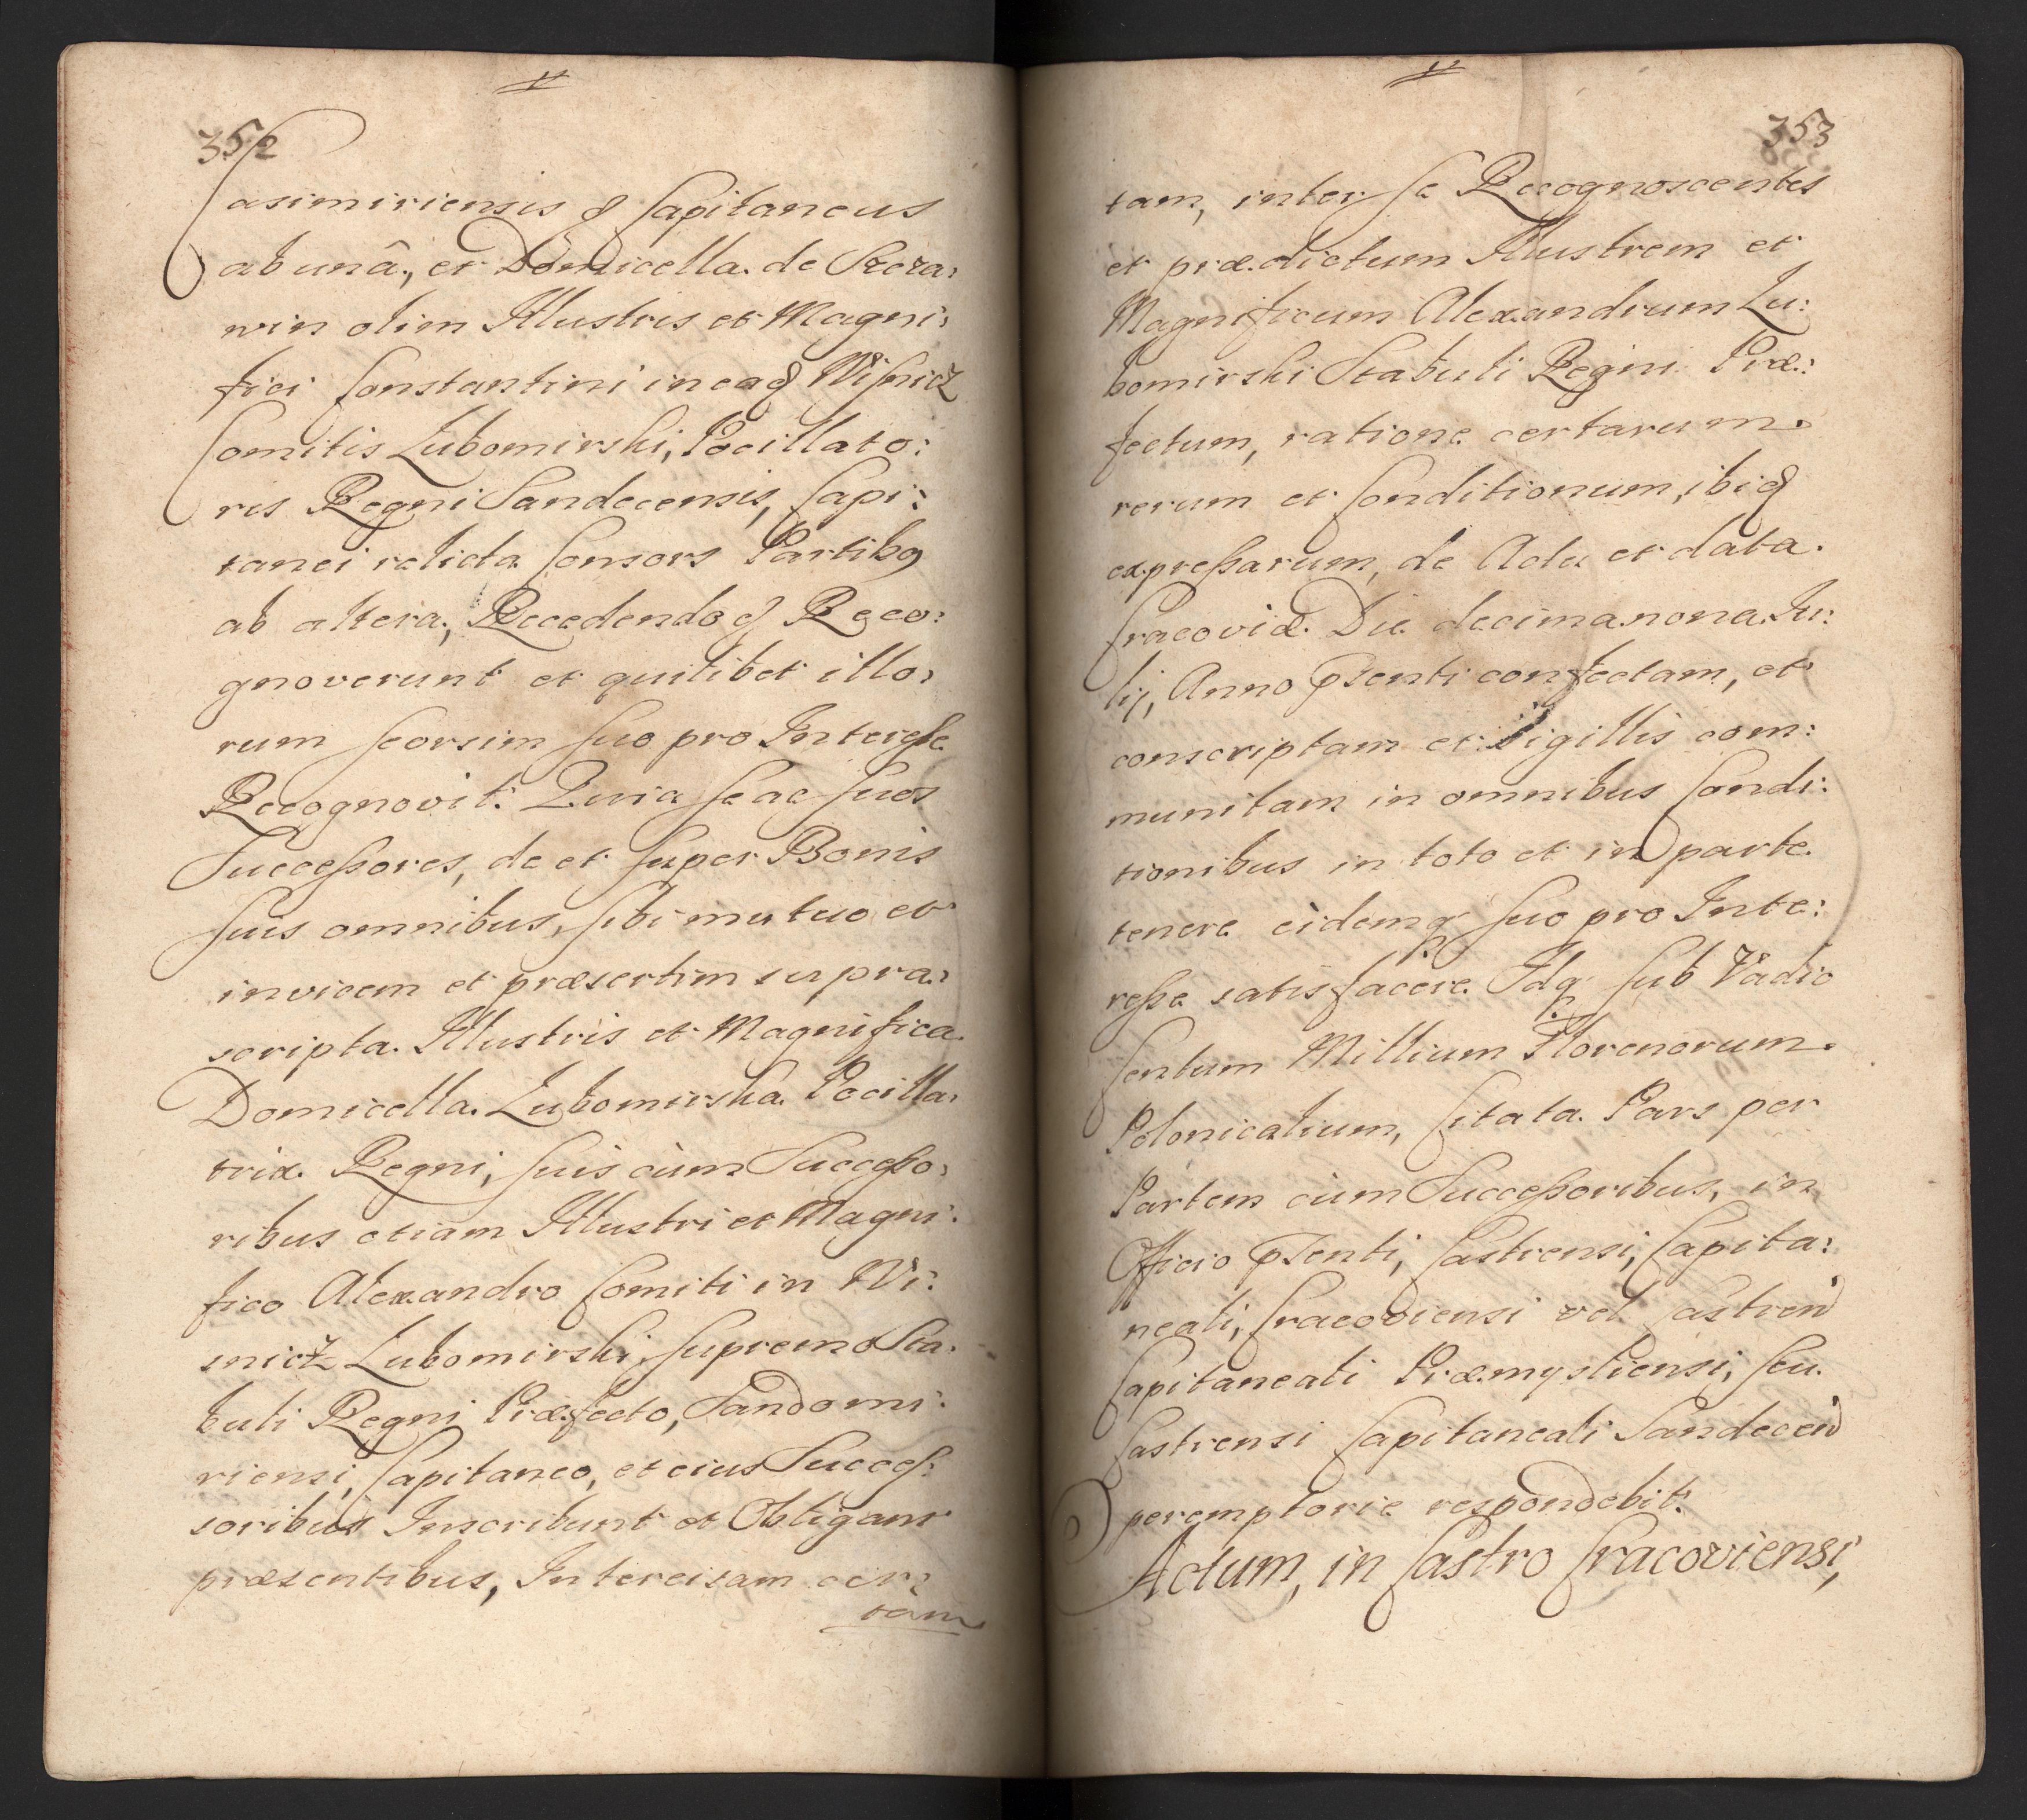 352
Casimiriensis q Capitaneus
ab unâ, et Domicella de Szcza:
win olim Illustris et Magni:
fici Constantini in eaq Wisnicz
Comitis Lubomirski, Pocillato:
ris Regni Sandecensis, Capi:
tanei relicta Consors Partibq
ab altera, Recedendo q Reco:
gnoverunt et quilibet illo:
rum seorsim suo pro Interesse
Recognovit. Quia se ac suos
Successores, de et super Bonis
suis omnibus, sibi mutuo et
invicem et præsertim supra:
scripta Illustris et Magnifica
Domicella Lubomirska Pocilla:
trix Regni, suis cùm Successo:
ribus etiam Illustri et Magni:
fico Alexandro Comiti in Wi:
snicz Lubomirski, supremo Sta:
buli Regni Præfecto, Sandomi:
riensi, Capitaneo, et eius Succes:
soribus Inscribunt et Obligant
præsentibus, Intercisam cer:
tam
353
tam, inter se Recognoscentes
et prædictum Illustrem et
Magnificum Alexandrum Lu:
bomirski Stabuli Regni Præ:
fectum, ratione certarum
rerum et Conditionum, ibiq
expressarum, de Actu et data
Cracoviæ Die decima nona Ju:
lij, Anno pSenti confectam, et
conscriptam et Sigillis com:
munitam in omnibus Condi:
tionibus in toto et in parte
tenere eidemq suo pro Inte:
resse satisfacere Idq sub Vadio
Centum Millium Florenorum
Polonicalium, Citata Pars per
Partem cùm Successoribus, in
Officio pSenti, Castrensi, Capita:
neali, Cracoviensi vel Castren
Capitaneali Præmysliensi, seu
Castrensi Capitaneali Sandecen
peremptorie respondebit.
Actum, in Castro Cracoviensi,